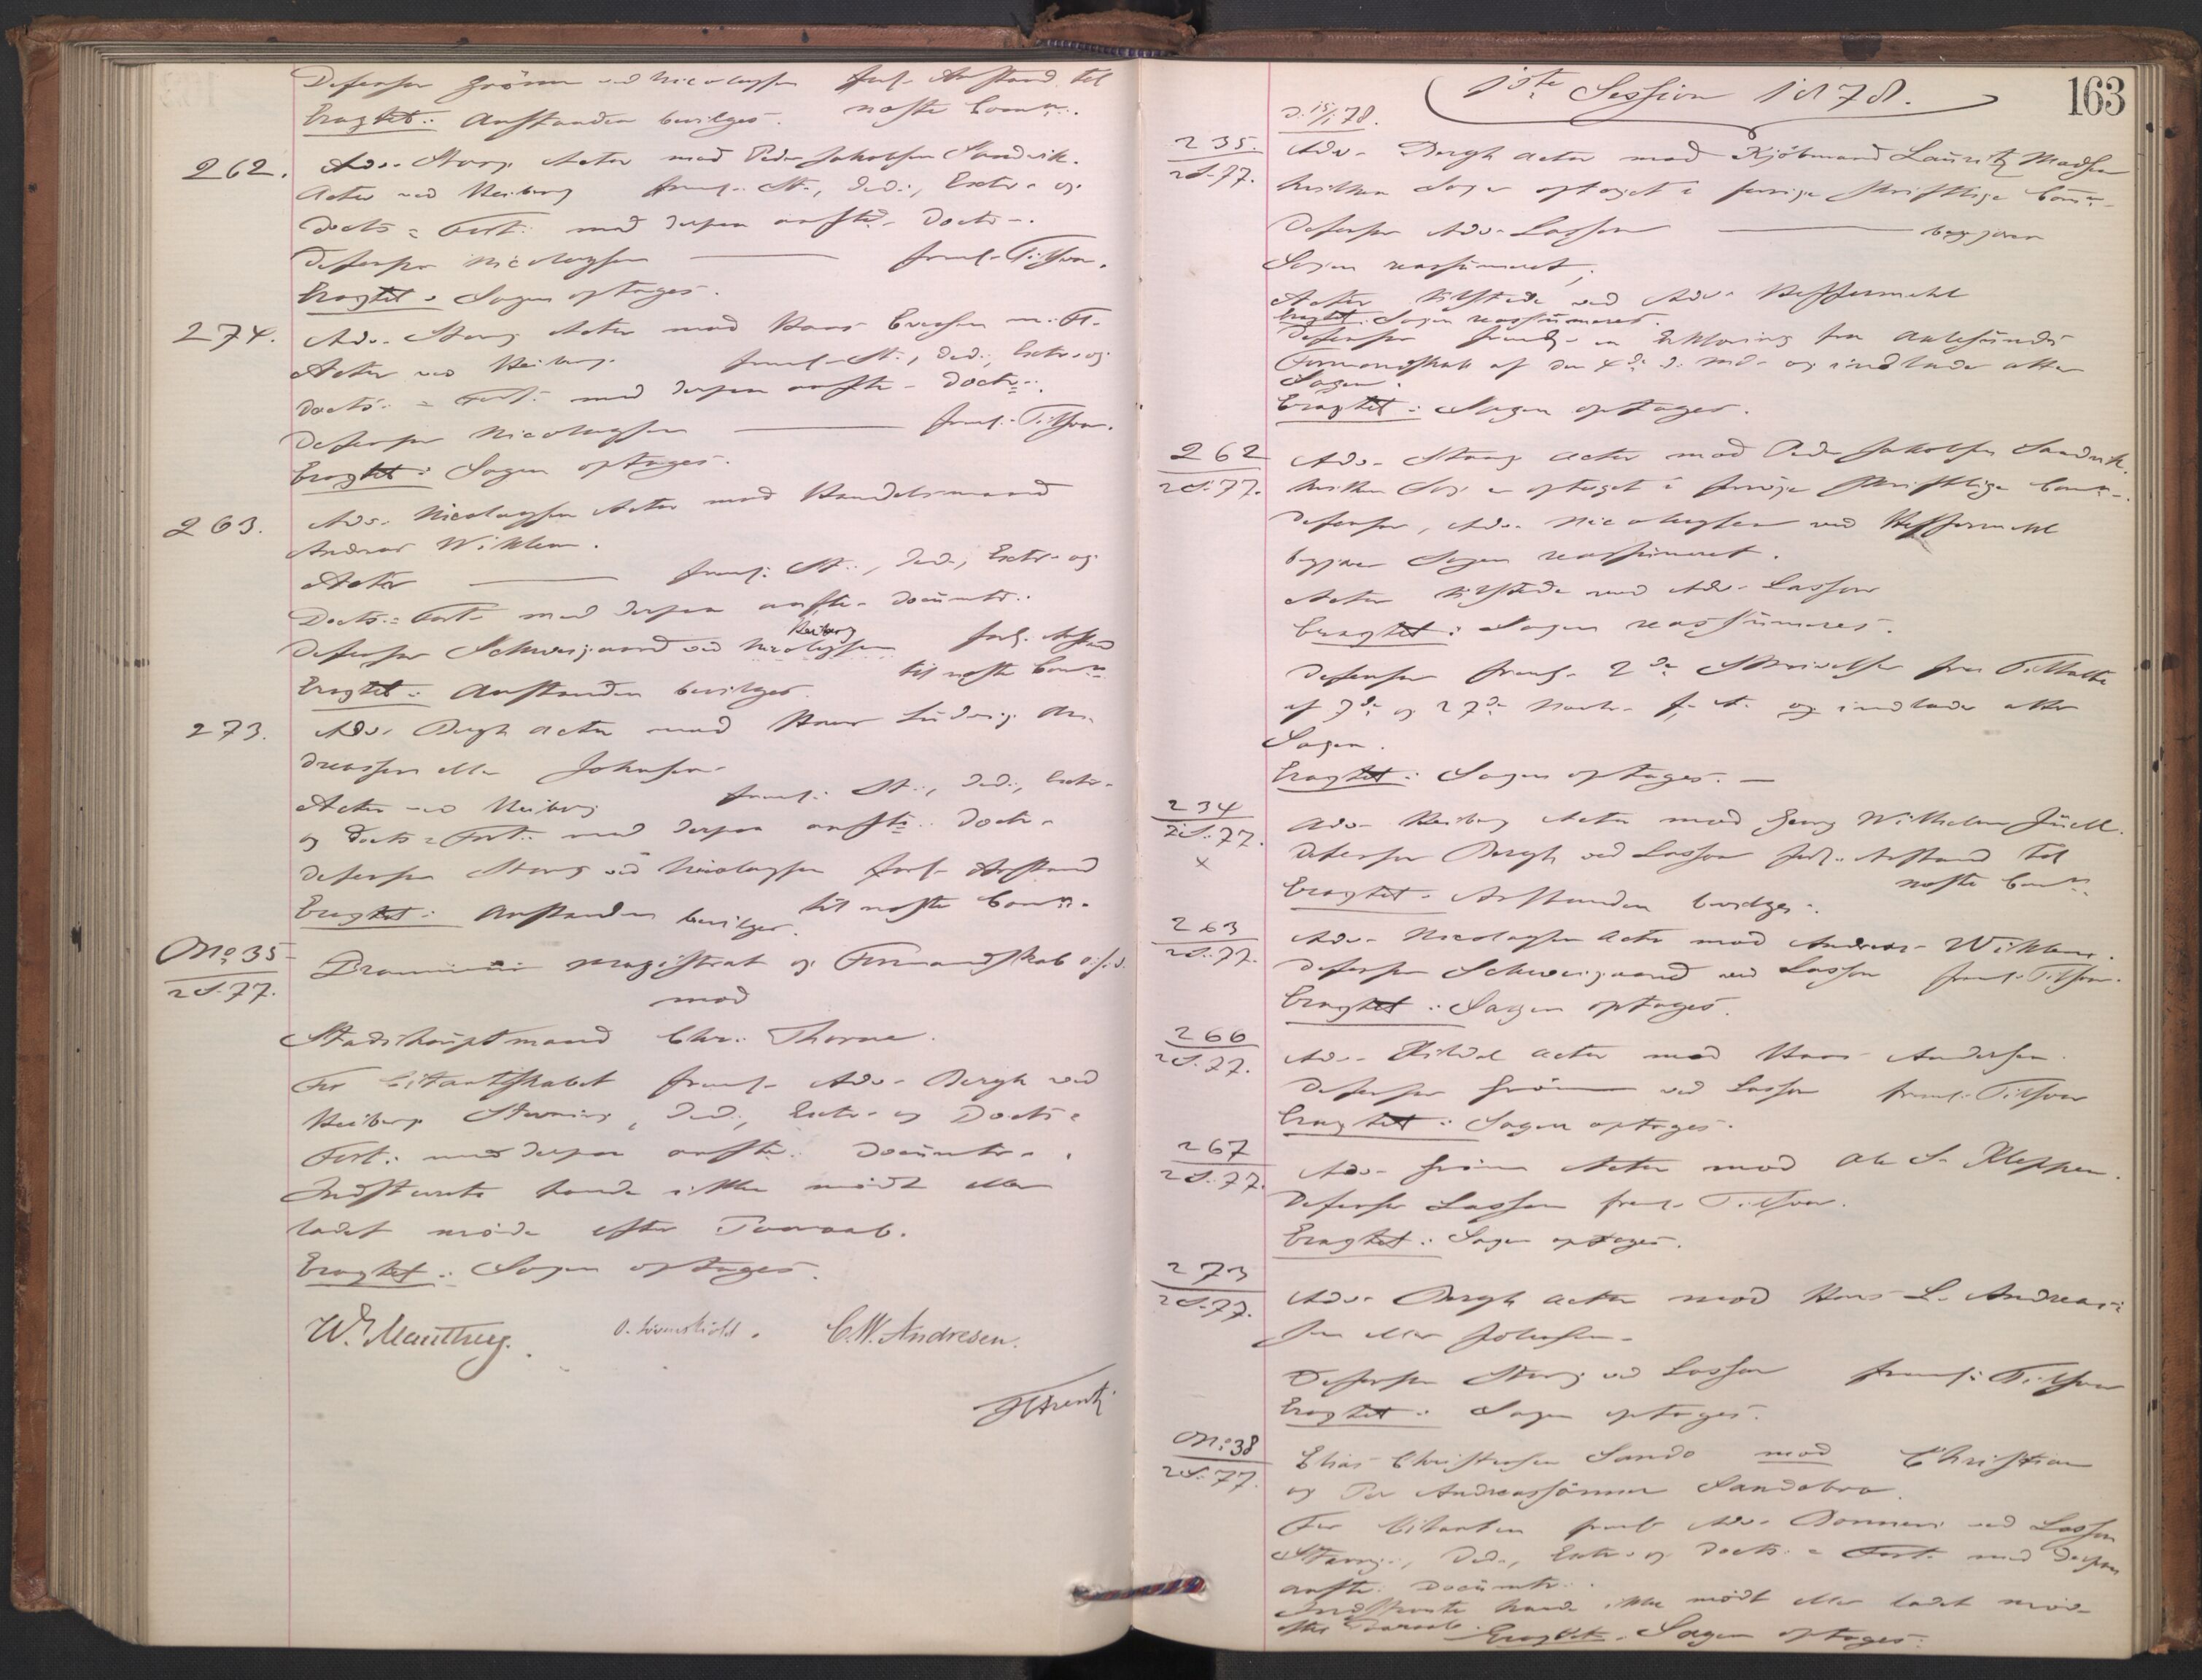 Defensor Grönn ved Nicolaysen forl. Anstand til
Eragtet: Anstanden bevilges. næste Comn.
262. Adv. Stang Actor mod Peder Jakobsen Sandvik.
Actor ved Heiberg freml. St., Ded., Extr. og
Docts = Fort. med derpaa anførte Doctr.
Defensor Nicolaysen freml. Tilsvar.
Eragtet: Sagen optages.
274. Adv. Stang Actor mod Hans m. Fl.
Actor ved Heiberg freml. St., Ded., Extr. og
Docts. = Fort. med derpaa anførte Doctr.
Defensor Nicolaysen freml. Tilsvar.
Eragtet: Sagen optages.
263. Adv. Nicolaysen Actor mod Handelsmand
Andreas Wiklem.
Actor freml. St., Ded., Extr. og
Docts. = Fort. med derpaa anførte Documtr.
Heiberg
Defensor Schweigaard ved Nicolaysen forl. Anstand
til næste Comn.
Eragtet: Anstanden bevilges.
273. Adv. Bergh Actor mod Hans Ludvig An-
dreassen eller Johnsen
Actor ved Heiberg freml. St., Ded., Extr.
og Docts = Fort. med derpaa anførte Doctr.
Defensor Stang ved Nicolaysen forl. Anstand
til næste Comn.
Eragtet: Anstanden bevilges.
No. 35
2 S. 77. Magistrat og Formandskab
mod
Stadshauptmand Chr. Thorne.
For Citantskabet freml. Adv. Bergh ved
Heiberg Stevning, Ded., Extr. og Docts =
Fort. med derpaa anførte Documtr.
Indstevnte havde ikke mödt eller
ladet möde efter Paaraab.
Eragtet: Sagen optages.
C.W. Andresen.
163
1ste Session 1878.
D. 15/1 78.
235.
2 S. 77. Adv. Bergh Actor mod Kjöbmand Lauritz Madsen
hvilken Sag er optaget i forrige skriftlige Comn.
Defensor Adv. Lasson begjærer
Sagen reassumeret,
Actor tilstede ved Adv. Heffermehl
Eragtet: Sagen reassumeres.
Defensor freml. en Erklæring fra Aalesunds
Formandskab af den 4de d. Md. og indlader atter
Sagen.
Eragtet: Sagen optages.
262
2 S. 77. Adv. Stang Actor mod Peder Jakobsen Sandvik.
hvilken Sag er optaget i forrige skriftlige Comn.
Defensor, Adv. Nicolaysen ved Heffermehl
begjærer Sagen reassumeret.
Actor tilstede ved Adv. Lasson
Eragtet: Sagen reassumeres.
Defensor freml. 2de Skrivelser fra Tiltalte
af 7de og 27de Novbr. f. A. og indlader atter
Sagen.
Eragtet: Sagen optages. —
234
2 S. 77.
x Adv. Heiberg Actor mod Georg Wilhelm Juell.
Defensor Bergh ved Lasson forl. Anstand til
næste Comn.
Eragtet. Anstanden bevilges.
263
2 S. 77. Adv. Nicolaysen Actor mod Andreas Wiklem.
Defensor Schweigaard ved Lasson freml. Tilsvar.
Eragtet: Sagen optages.
266
2 S. 77. Adv. Actor mod Hans Andersen.
Defensor Grönn ved Lasson freml. Tilsvar
Eragtet: Sagen optages.
267
2 S. 77. Adv. Grönn Actor mod Ole S. Kleppen.
Defensor Lasson freml. Tilsvar.
Eragtet: Sagen optages.
273
2 S. 77. Adv. Bergh Actor mod Hans L. Andreas-
sen eller Johnsen.
Defensor Stang ved Lasson freml. Tilsvar
Eragtet: Sagen optages.
No. 38
2 S. 77. Elias Christensen Sandö mod Christian
og Per Andreassönner Sandöbra
For Citanten freml. Adv. ved Lasson
Stevng., Ded., Extr. og Docts. = Fort. med derpaa
anførte Documtr.
Indstevnte havde ikke mödt eller ladet möde
efter Paaraab. Eragtet. Sagen optages.